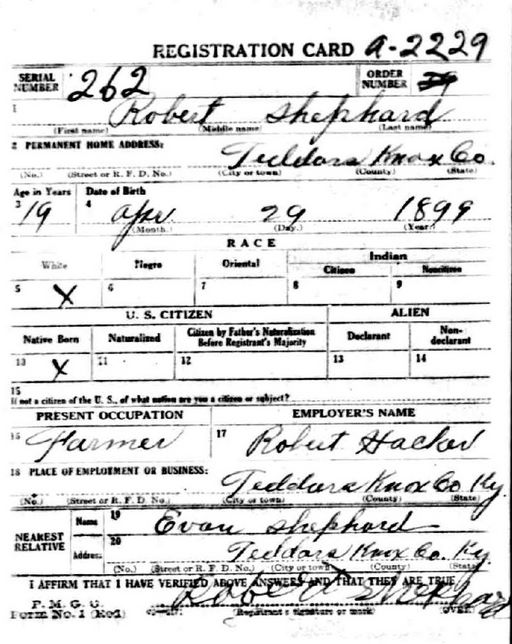 REGISTRATION CARD A-2229
SERIAL NUMBER 262 ORDER NUMBER
1 Robert Shephard
(First name) (Middle name) (Last name)
2 PERMANENT HOME ADDRESS:
Teddars Knox Co.
(No.) (Street or R. F. D. No.) (City or town) (County) (State)
Age in Years Date of Birth
3 19 4 Apr 29 1899
(Month.) (Day.) (Year)
RACE
White Negro Oriental Indian
Citizen Noncitizen
5 X 6 7 8 9
U. S. CITIZEN ALIEN
Native Born Naturalized Citizen by Father's Naturalization Before Registrant's Majority Declarant Non-declarant
10 X 11 12 13 14
15
If not a citizen of the U. S., of what nation are you a citizen or subject?
PRESENT OCCUPATION EMPLOYER'S NAME
16 Farmer 17 Robert Hacker
18 PLACE OF EMPLOYMENT OR BUSINESS:
Teddars Knox Co Ky.
(No.) (Street or R. F. D. No.) (City or town) (County) (State)
NEAREST RELATIVE Name 19 Evan Shephard
Address 20 Teddars Knox Co. Ky
(No.) (Street or R. F. D. No.) (City or town) (County) (State)
I AFFIRM THAT I HAVE VERIFIED ABOVE ANSWERS AND THAT THEY ARE TRUE
Robert Shephard
P. M. G. O.
Form No. 1 (Red) (Registrant's signature or mark) (OVER)